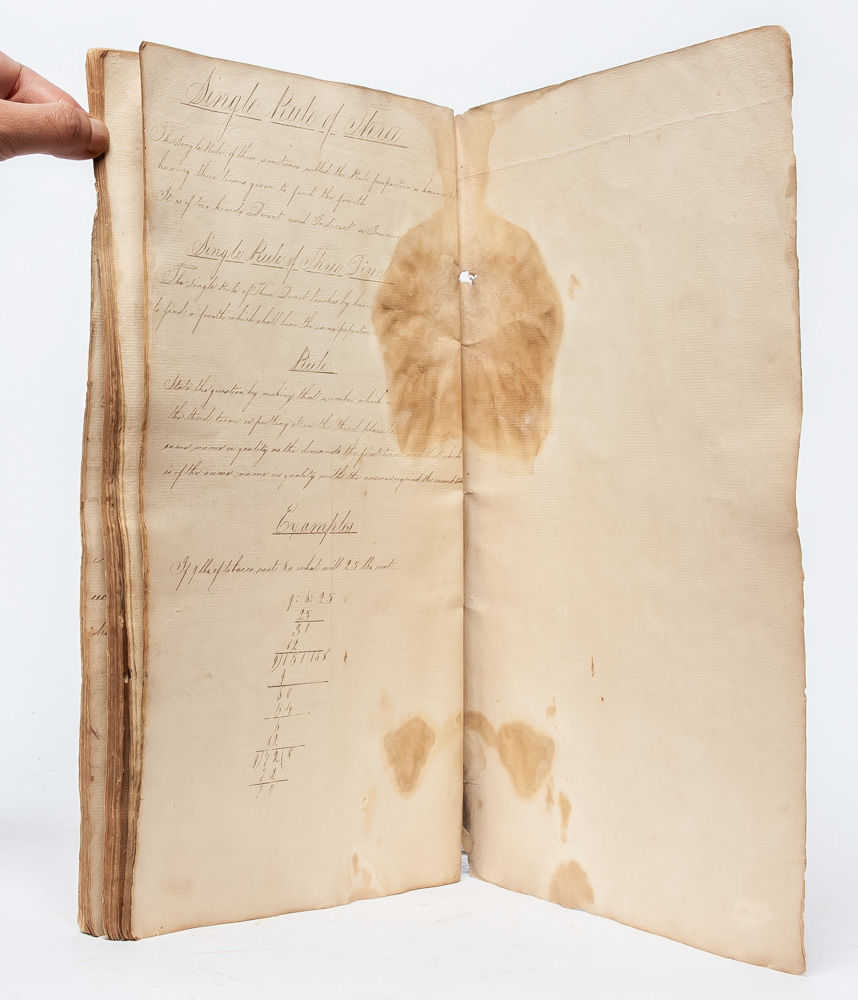 Single Rule of Three
The Single Rule of three sometimes called the Rule proportion is known by
having three terms given to find the fourth
It is of two kinds Direct and Indirect or
Single Rule of Three Direct
The Single Rule of Three Direct teaches by having
to find a fourth which shall have the same proportion
Rule
State the question by making that number which
the third term or putting it in the third place
same name or quality as the demand the first term and that which
is of the same name or quality with the answer required the second term
Examples
If 9 lbs of tobacco cost 6s what will 25 lbs cost
9 : 6 : 25
25
12
9
60
54
6
12
72